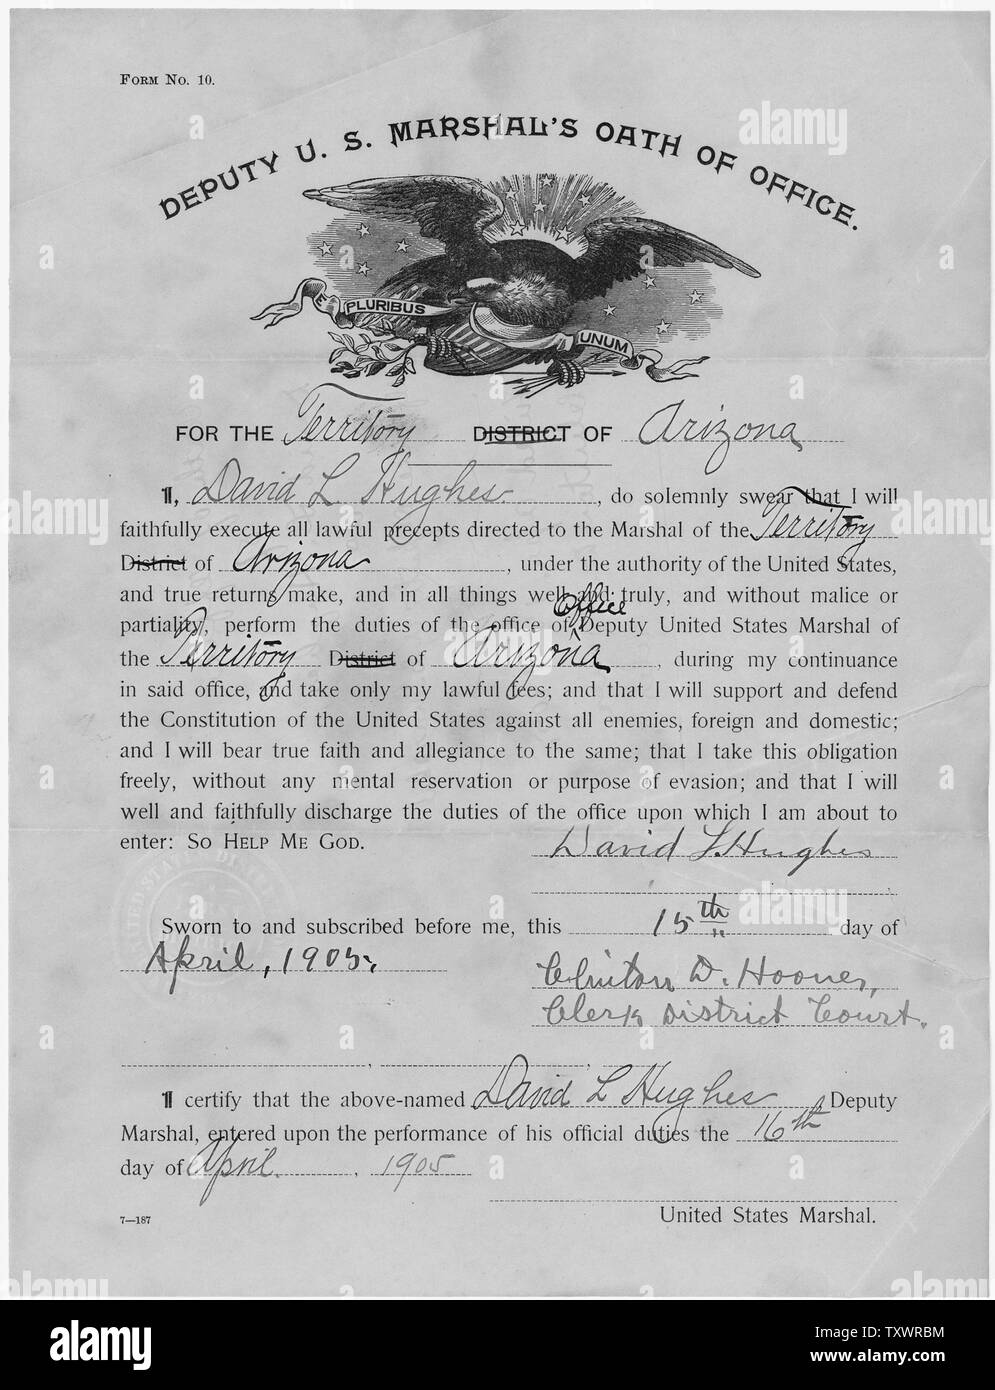 FORM No. 10.
DEPUTY U. S. MARSHAL'S OATH OF OFFICE.
E PLURIBUS UNUM
FOR THE Territory DISTRICT OF Arizona
I, David L Hughes, do solemnly swear that I will
faithfully execute all lawful precepts directed to the Marshal of the Territory
District of Arizona, under the authority of the United States,
and true returns make, and in all things well and truly, and without malice or
Office
partiality, perform the duties of the office of Deputy United States Marshal of
the Territory District of Arizona, during my continuance
in said office, and take only my lawful fees; and that I will support and defend
the Constitution of the United States against all enemies, foreign and domestic;
and I will bear true faith and allegiance to the same; that I take this obligation
freely, without any mental reservation or purpose of evasion; and that I will
well and faithfully discharge the duties of the office upon which I am about to
enter: SO HELP ME GOD.
David L. Hughes
Sworn to and subscribed before me, this 15th day of
April, 1905.
Clinton D. Hoover,
Clerk District Court.
I certify that the above-named David L Hughes Deputy
Marshal, entered upon the performance of his official duties the 16th
day of April, 1905
United States Marshal.
7—187
alamy
alamy
Image ID: TXWRBM
www.alamy.com